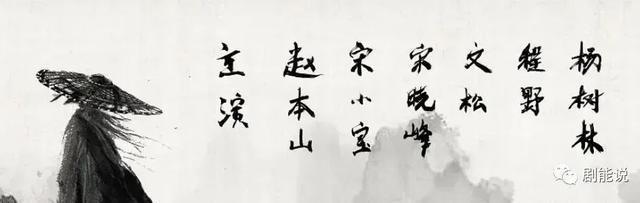 主演
赵本山
宋小宝
宋晓峰
文松
程野
杨树林
剧能说